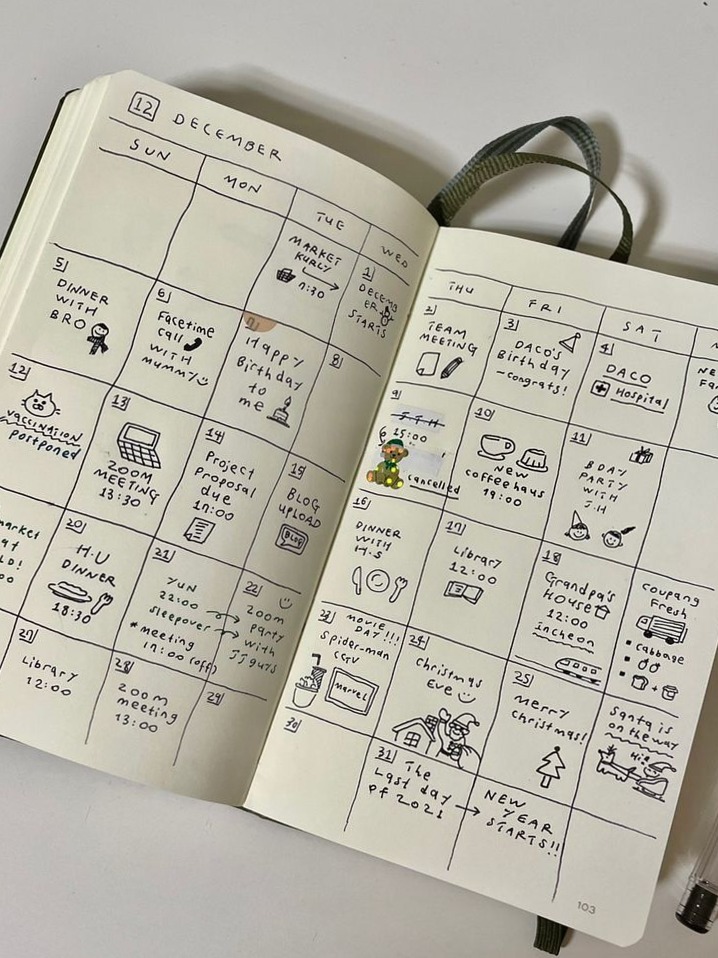 12 DECEMBER
SUN
MON
TUE
WED
MARKET
KURLY
7:30
1
DECEMB
ER
STARTS
5
DINNER
WITH
BRO
6
Facetime
call
WITH
MUMMY
7
Happy
Birthday
to
me
8
12
VACCINATION
postponed
13
ZOOM
MEETING
13:30
14
Project
Proposal
due
17:00
15
BLOG
UPLOAD
BLOG
market
at
LD!
00
20
H.U
DINNER
18:30
21
YUN
22:00
sleepover
*meeting
17:00 (off)
22
ZOOM
party
with
JJ guys
27
Library
12:00
28
zoom
meeting
13:00
29
THU
FRI
SAT
2
TEAM
MEETING
3
DACO's
Birthday
-congrats!
4
DACO
Hospital
NE
Fa
9
J.H
15:00
cancelled
10
New
coffeehaus
19:00
11
BDAY
PARTY
WITH
J.H
16
DINNER
WITH
H.S
17
Library
12:00
18
Grandpa's
HOUSE
12:00
Incheon
Coupang
Fresh
cabbage
+
23
MOVIE
DAY!!!
Spider-man
CGV
Marvel
24
Christmas
Eve
25
Merry
Christmas!
Santa is
on the way
Hi
30
31
The
Last day
of 2021
NEW
YEAR
STARTS!!
103